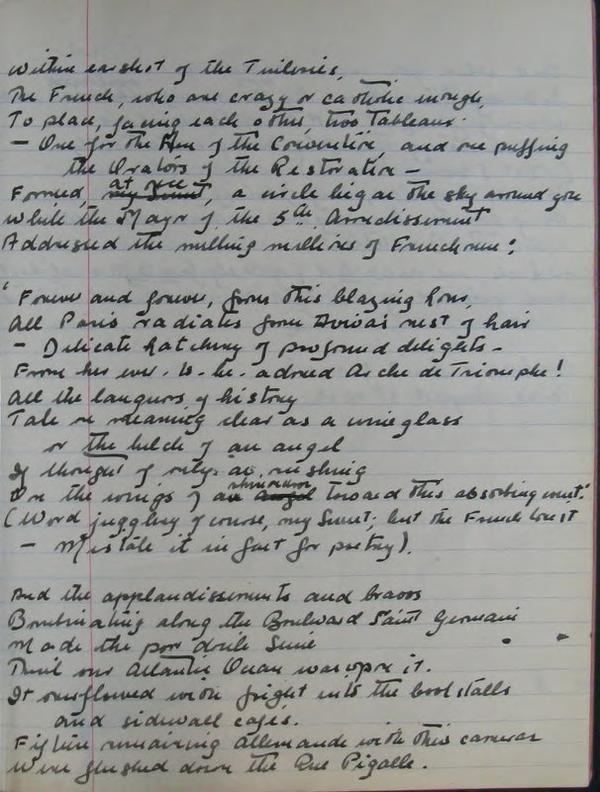 Within earshot of the Tuileries,
The French, who are crazy or catholic enough,
To place, facing each other, two Tableaux
- One for the Men of the Convention, and one puffing
the Orators of the Restoration -
Formed, at once, a circle big as the sky around you
While the Mayor of the 5th Arrondissement
Addressed the milling millions of Frenchmen:
"Forever and forever, from this blazing hour,
All Paris radiates from Aviva's nest of hair
- Delicate hatchery of profound delights -
From her ever-to-be-adored Arche de Triomphe!
All the languors of history
Take on meaning clear as a wineglass
or the belch of an angel
If thought of only as rushing
On the wings of a toward this absorbing
(Word jugglery of course, my Sweet, but the French
- Mistake it in fact for poetry).
And the applaudissements and bravos
Bombinating along the Boulevard Saint Germain
Made the poor drab Seine
Think our Atlantic Ocean was upon it.
It overflowed with fright into the bookstalls
and sidewalk cafés.
Fifteen remaining Allemands with their cameras
Were flushed down the Rue Pigalle.